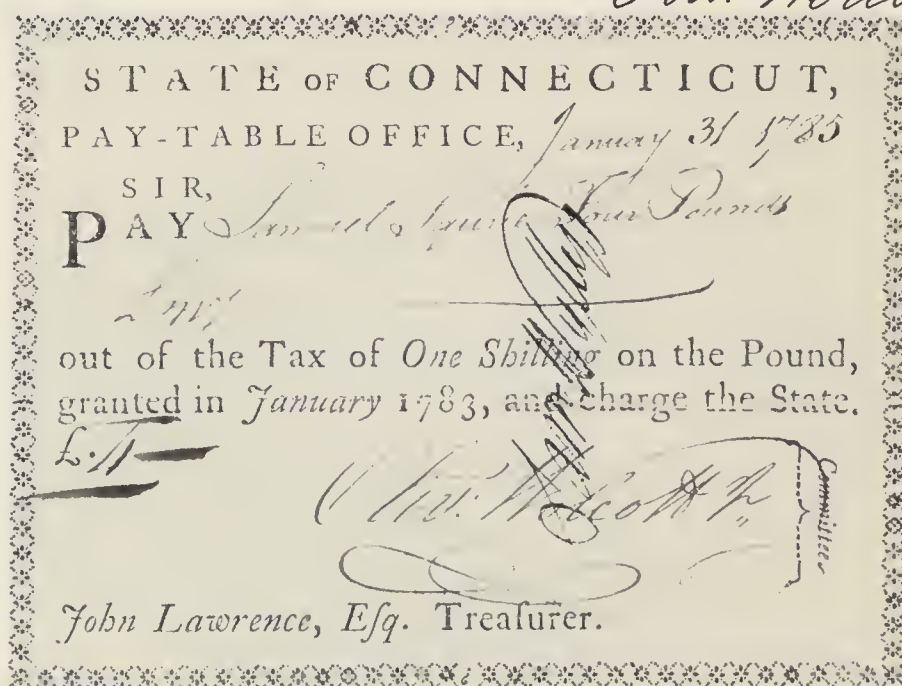 STATE OF CONNECTICUT,
PAY-TABLE OFFICE, January 31 1785
SIR,
PAY Samuel Squire Four Pounds
out of the Tax of One Shilling on the Pound,
granted in January 1783, and charge the State.
£.
Olivr Wolcott Jr
Committee
John Lawrence, Eſq. Treaſurer.